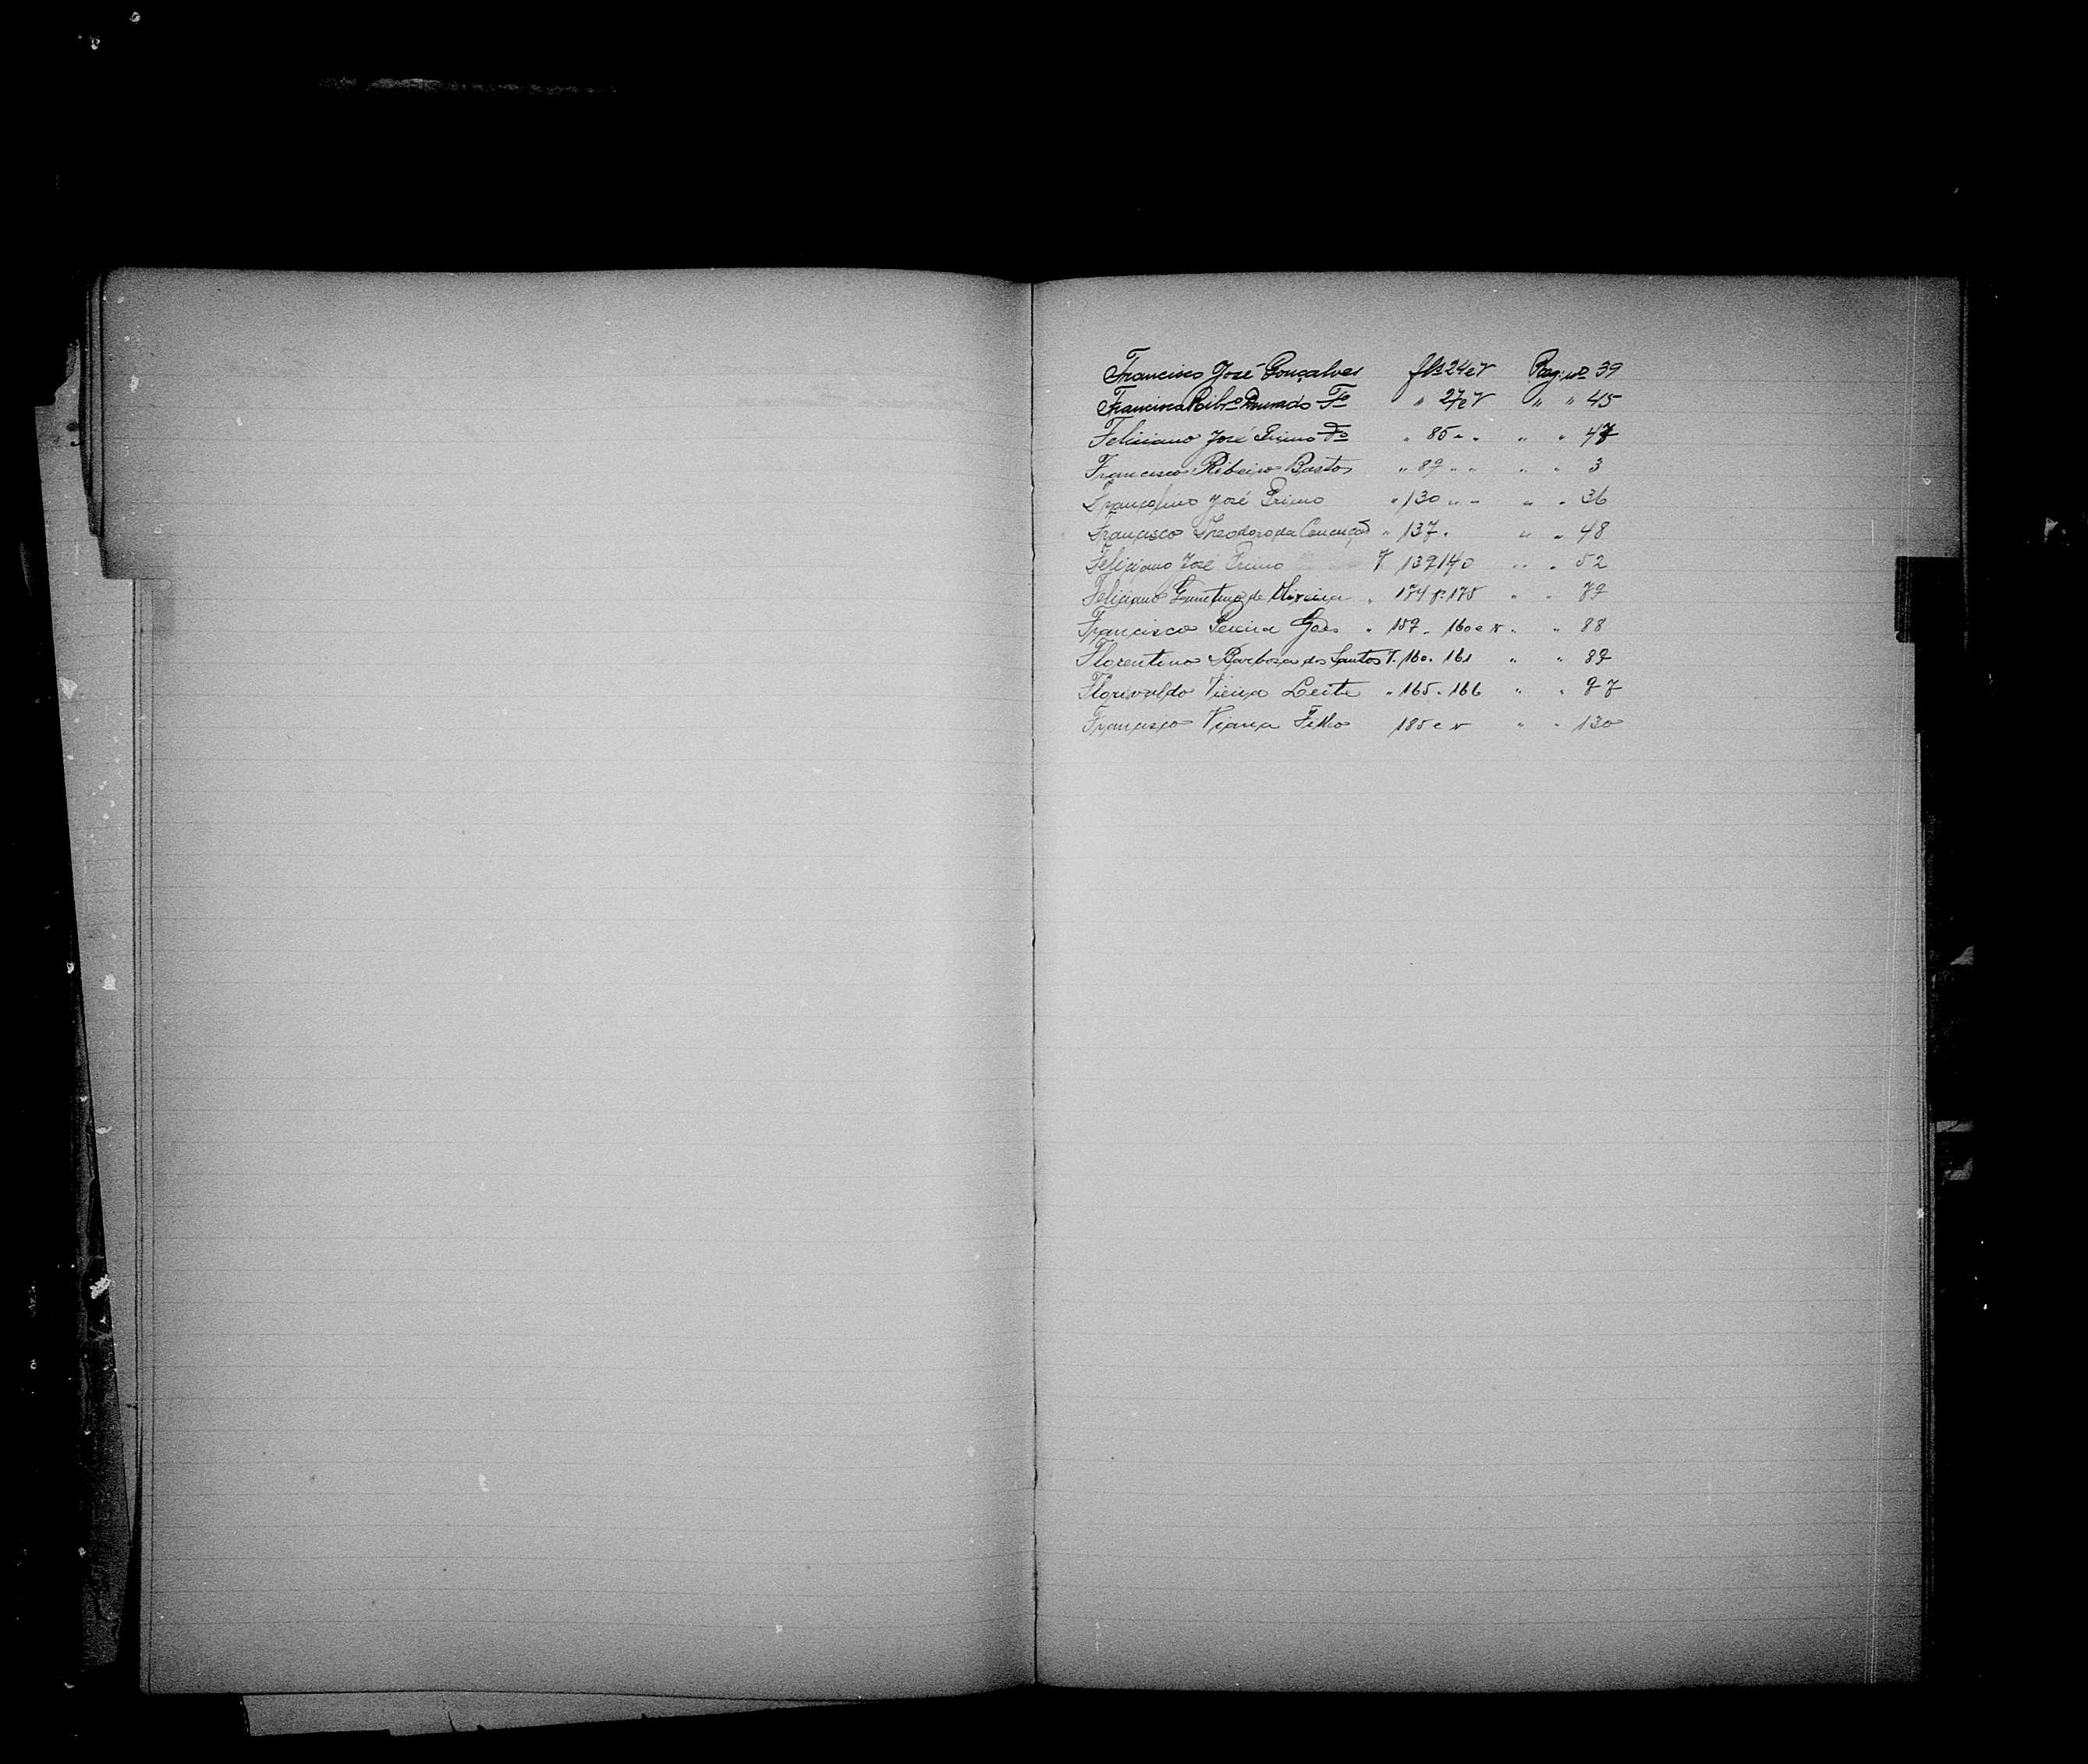 Francisco José Gonçalves fls 24 e V Pag: nº 39
Francisco Ribrº Dourado Fº " 27 e V " " 45
Feliciano José Primo Fº " 85 " " " " 47
Francisco Ribeiro Bastos " 89 " " " " 3
Francolino José Primo " 130 " " " " 36
Francisco Theodoro da Conceição " 137 " " " 48
Feliciano José Primo V 139 140 " " 52
Feliciano de Oliveira " 174 V 175 " " 79
Francisco Pereira Góes " 159 " 160 e v " " 88
Florentino Barbosa dos Santos V. 160. 161 " " 89
Florisvaldo Vieira Leite " 165 " 166 " " 97
Francisco Viana Filho 185 e v " " 130